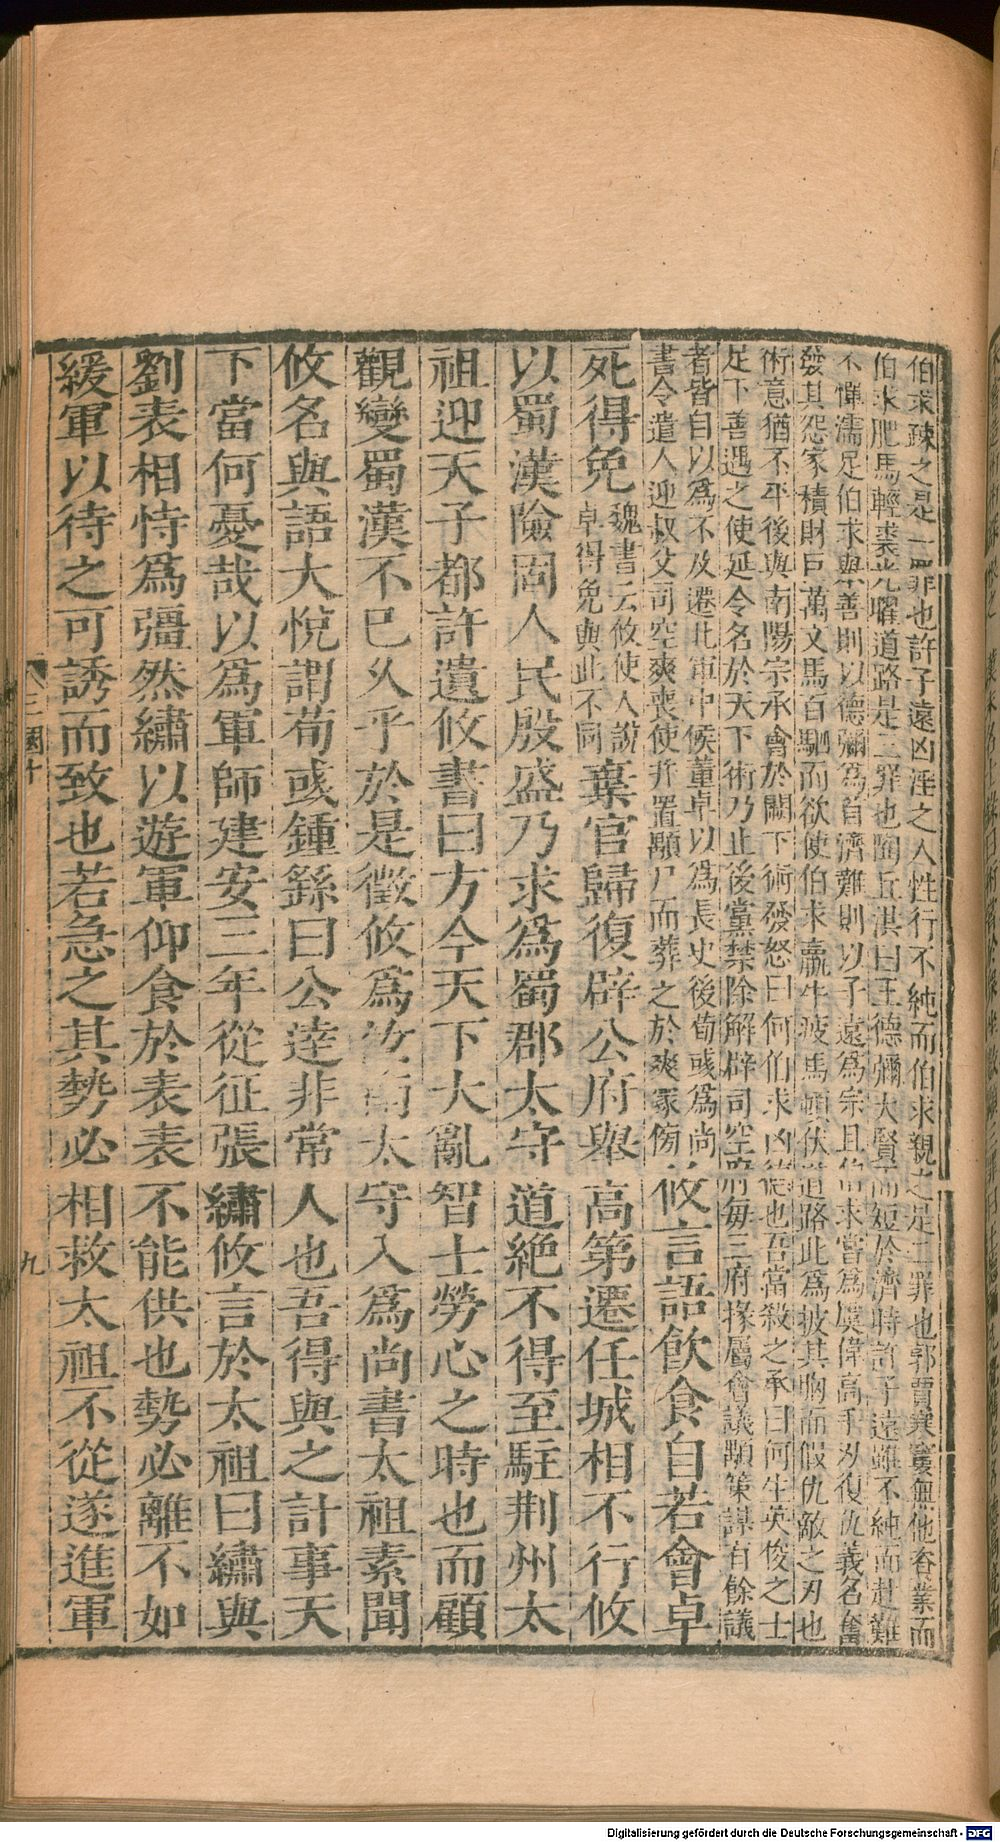 伯求踈之是一罪也許子遠凶淫之人性行不純而伯求親之是二罪也郭賈寒窶無他資業而
伯求肥馬輕裘光曜道路是三罪也陶丘洪曰王德彌大賢而短於濟時許子遠雖不純而赴難
不憚濡足伯求舉善則以德彌爲首濟難則以子遠爲宗且伯求嘗爲虞偉高手刃復仇義名奮
發其怨家積財巨萬文馬百駟而欲使伯求羸牛疲馬頓伏道路此爲披其胸而假仇敵之刃也
術意猶不平後與南陽宗承會於闕下術發怒曰何伯求凶德也吾當殺之承曰何生英俊之士
足下善遇之使延令名於天下術乃止後黨禁除解辟司空府每三府掾屬會議顒策謀有餘議
者皆自以爲不及遷北軍中候董卓以爲長史後荀彧爲尚
書令遣人迎叔父司空爽喪使并置顒尸而葬之於爽冢傍
攸言語飲食自若會卓
死得免
魏書云攸使人說
卓得免與此不同
棄官歸復辟公府舉高第遷任城相不行攸
以蜀漢險固人民殷盛乃求爲蜀郡太守道絕不得至駐荆州太
祖迎天子都許遺攸書曰方今天下大亂智士勞心之時也而顧
觀變蜀漢不已乆乎於是徵攸爲汝南太守入爲尚書太祖素聞
攸名與語大悅謂荀彧鍾繇曰公達非常人也吾得與之計事天
下當何憂哉以爲軍師建安三年從征張繡攸言於太祖曰繡與
劉表相恃爲彊然繡以遊軍仰食於表表不能供也勢必離不如
緩軍以待之可誘而致也若急之其勢必相救太祖不從遂進軍
三國十
九
Digitalisierung gefördert durch die Deutsche Forschungsgemeinschaft - DFG